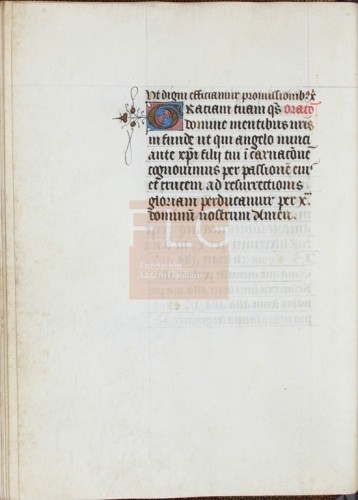 Ut digni efficiamur promissionib9 x
Gratiam tuam qs oracō
domine mentibus nr̄is
infunde ut qui angelo nunci
ante xp̄i filij tui īcarnacōnē
cognouimus per passionē eius
et crucem ad resurrectionis
gloriam perducamur per x̄
dominū nostrum Amen
FLG
Fundación
Lázaro Galdiano